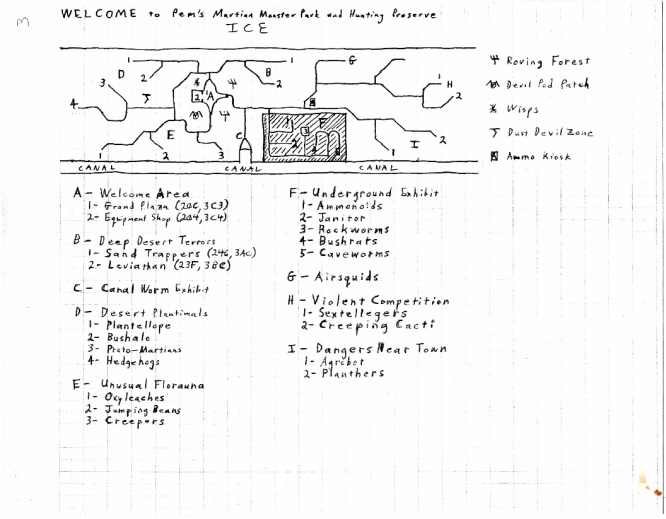 3
WELCOME to Pem's Martian Monster Park and Hunting Preserve
ICE
D 1 2 3 4 B 1 2 A 1 2 G H 1 2
E 1 2 3 C F 1 2 3 4 5 I 1 2
CANAL CANAL CANAL
Roving Forest
Devil Pod Patch
Wisps
Dust Devil Zone
Ammo Kiosk
A - Welcome Area
1 - Grand Plaza (20C, 3C3)
2 - Equipment Shop (204, 3C4)
B - Deep Desert Terrors
1 - Sand Trappers (246, 3AC)
2 - Leviathan (23F, 3BC)
C - Canal Worm Exhibit
D - Desert Plantimals
1 - Plantellope
2 - Bushalo
3 - Proto-Martians
4 - Hedgehogs
E - Unusual Florauna
1 - Oxyleaches
2 - Jumping Beans
3 - Creepers
F - Underground Exhibit
1 - Ammonoids
2 - Janitor
3 - Rockworms
4 - Bushrats
5 - Caveworms
G - Airsquids
H - Violent Competition
1 - Sextellegers
2 - Creeping Cacti
I - Dangers Near Town
1 - Agrobot
2 - Planthers